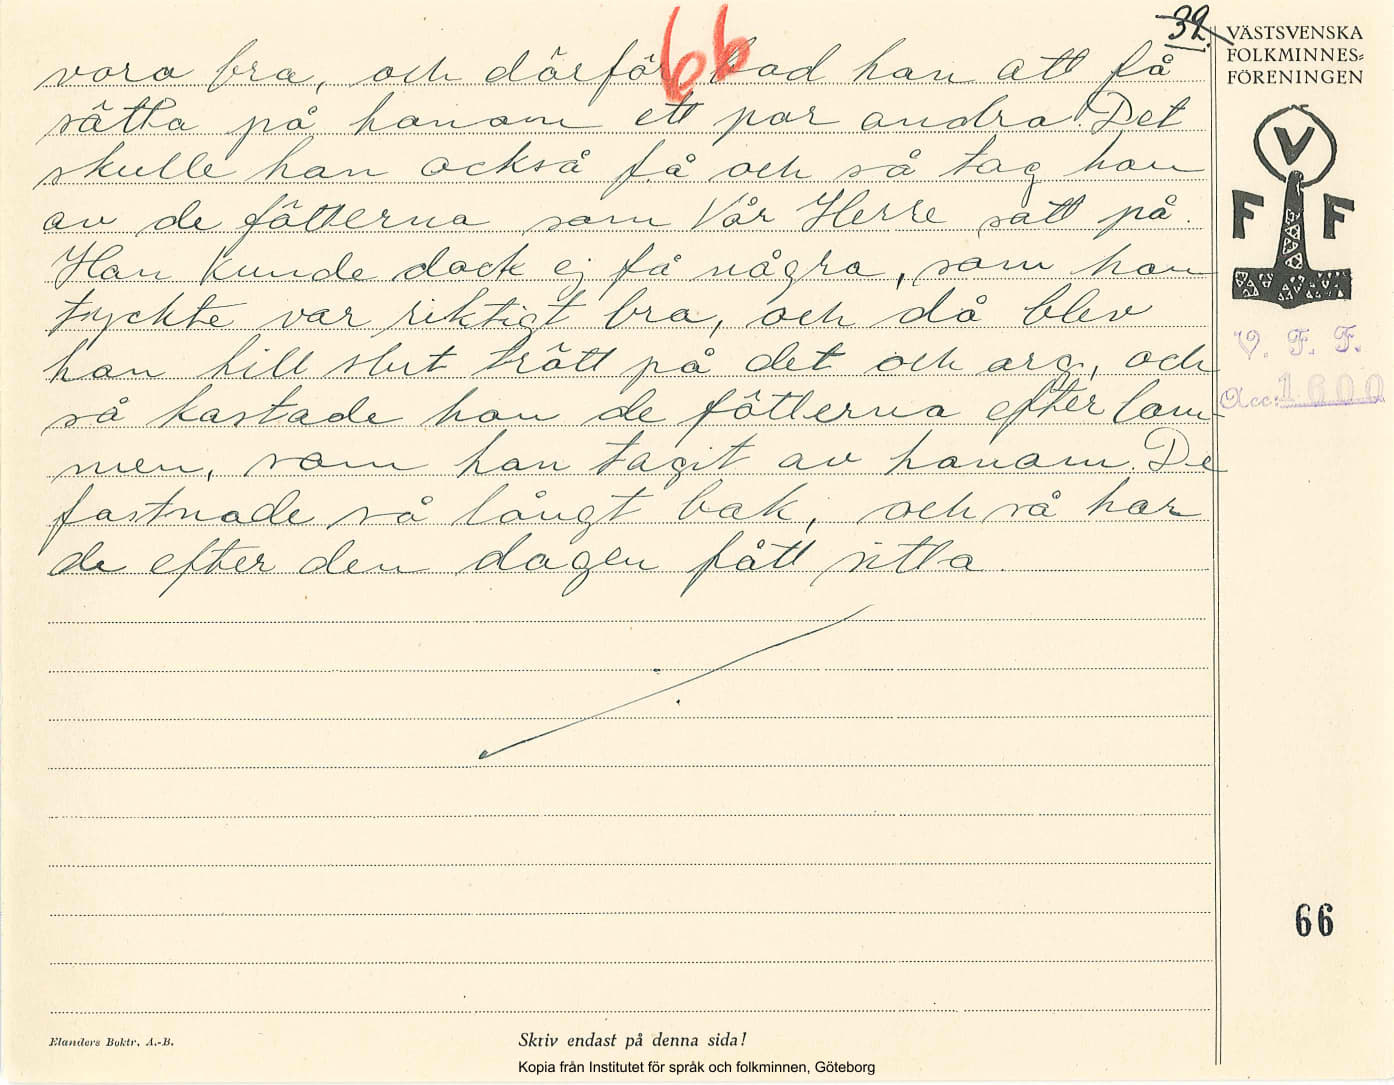 32.
66
VÄSTSVENSKA
FOLKMINNES=
FÖRENINGEN
vara bra, och därför bad han att få
sätta på honom ett par andra. Det
skulle han också få och så tog han
av de fötterna som Vår Herre satt på.
Han kunde dock ej få några, som han
tyckte var riktigt bra, och då blev
han till slut trött på det och arg, och
så kastade han de fötterna efter lom-
men, som han tagit av honom. De
fastnade så långt bak, och så har
de efter den dagen fått sitta.
V
F F
V. F. F.
Acc: 1600
66
Elanders Boktr. A.-B.
Skriv endast på denna sida!
Kopia från Institutet för språk och folkminnen, Göteborg